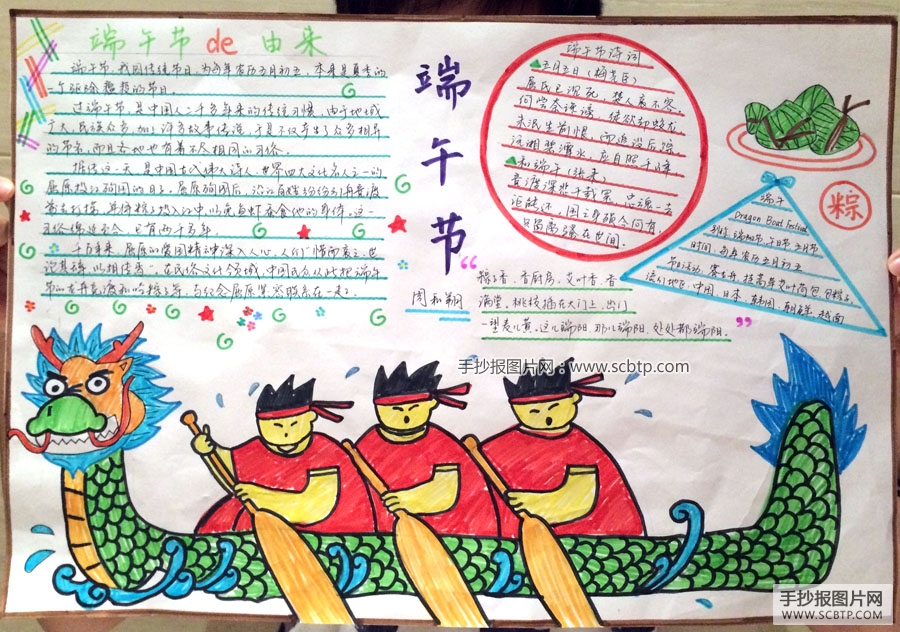 端午节de由来
端午节,我国传统节日,为每年农历五月初五,本来是夏季的
一个驱除瘟疫的节日。
过端午节,是中国人二千多年来的传统习惯,由于地域
广大,民族众多,加上许多故事传说,于是不仅产生了众多相异
的节名,而且各地也有着不尽相同的习俗。
据传这一天,是中国古代伟大诗人、世界四大文化名人之一的
屈原投江殉国的日子。屈原殉国后,
常去打捞,
习俗绵延至今,已有两千多年。
千百年来,屈原的爱国精神深入人心,人们“惜而哀之,世
论其辞,以相传焉”。在民俗文化领域,中国民众从此把端午
节的龙舟竞渡和吃粽子等,与纪念屈原紧密联系在一起。
端午节
周和翔
端午节诗词
五月五日(梅尧臣)
屈氏已沉死,楚人哀不容。
何尝奈谗谤,徒欲却蛟龙。
未泯生前恨,而追没后踪。
沅湘碧潭水,应自照千峰。
和端午(张耒)
竞渡深悲千载冤,忠魂一去
讵能还。国亡身殒今何有,
只留离骚在世间。
粽子香,香厨房。艾叶香,香
满堂。桃枝插在大门上,出门
一望麦儿黄。这儿端阳,那儿端阳,处处都端阳。
粽
端午
Dragon Boat Festival
别名:端阳节、午日节、五月节
时间:每年农历五月初五
节日活动:赛龙舟、挂菖蒲艾叶荷包、包粽子
流行地区:中国、日本、韩国、朝鲜、越南
手抄报图片网:www.scbtp.com
手抄报图片网
WWW.SCBTP.COM